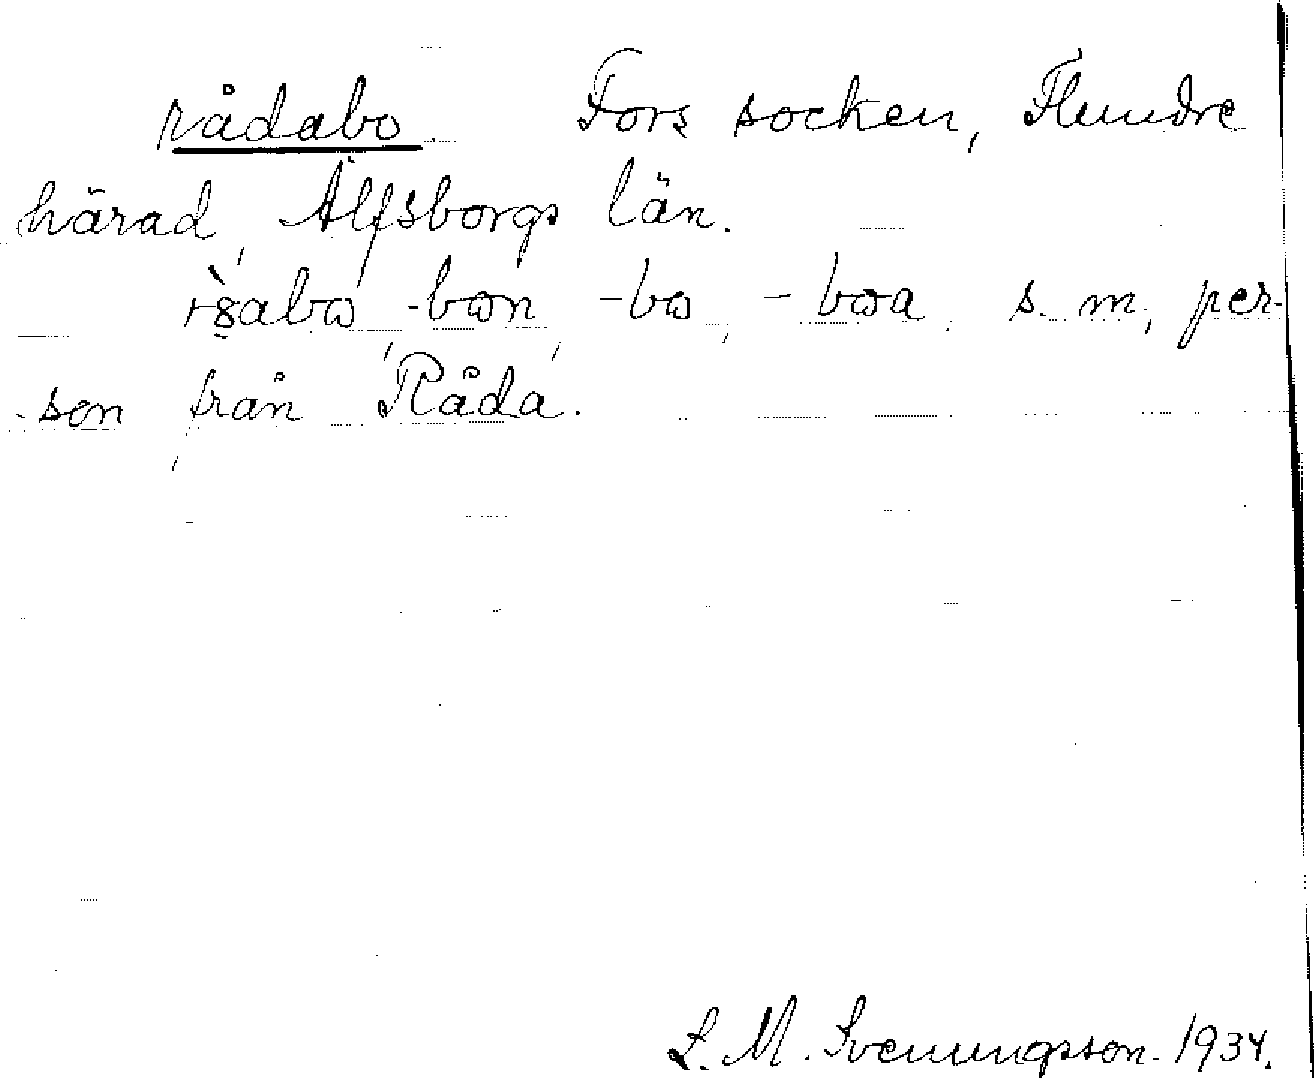 rådabo. Fors socken, Flundre
härad, Älfsborgs län.
-bon, -bo, -boa. s. m., per-
son från Råda.
L. M. Svenungsson. 1934.